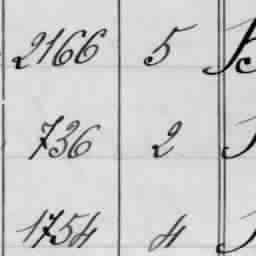 2166 5
736 2
1754 4